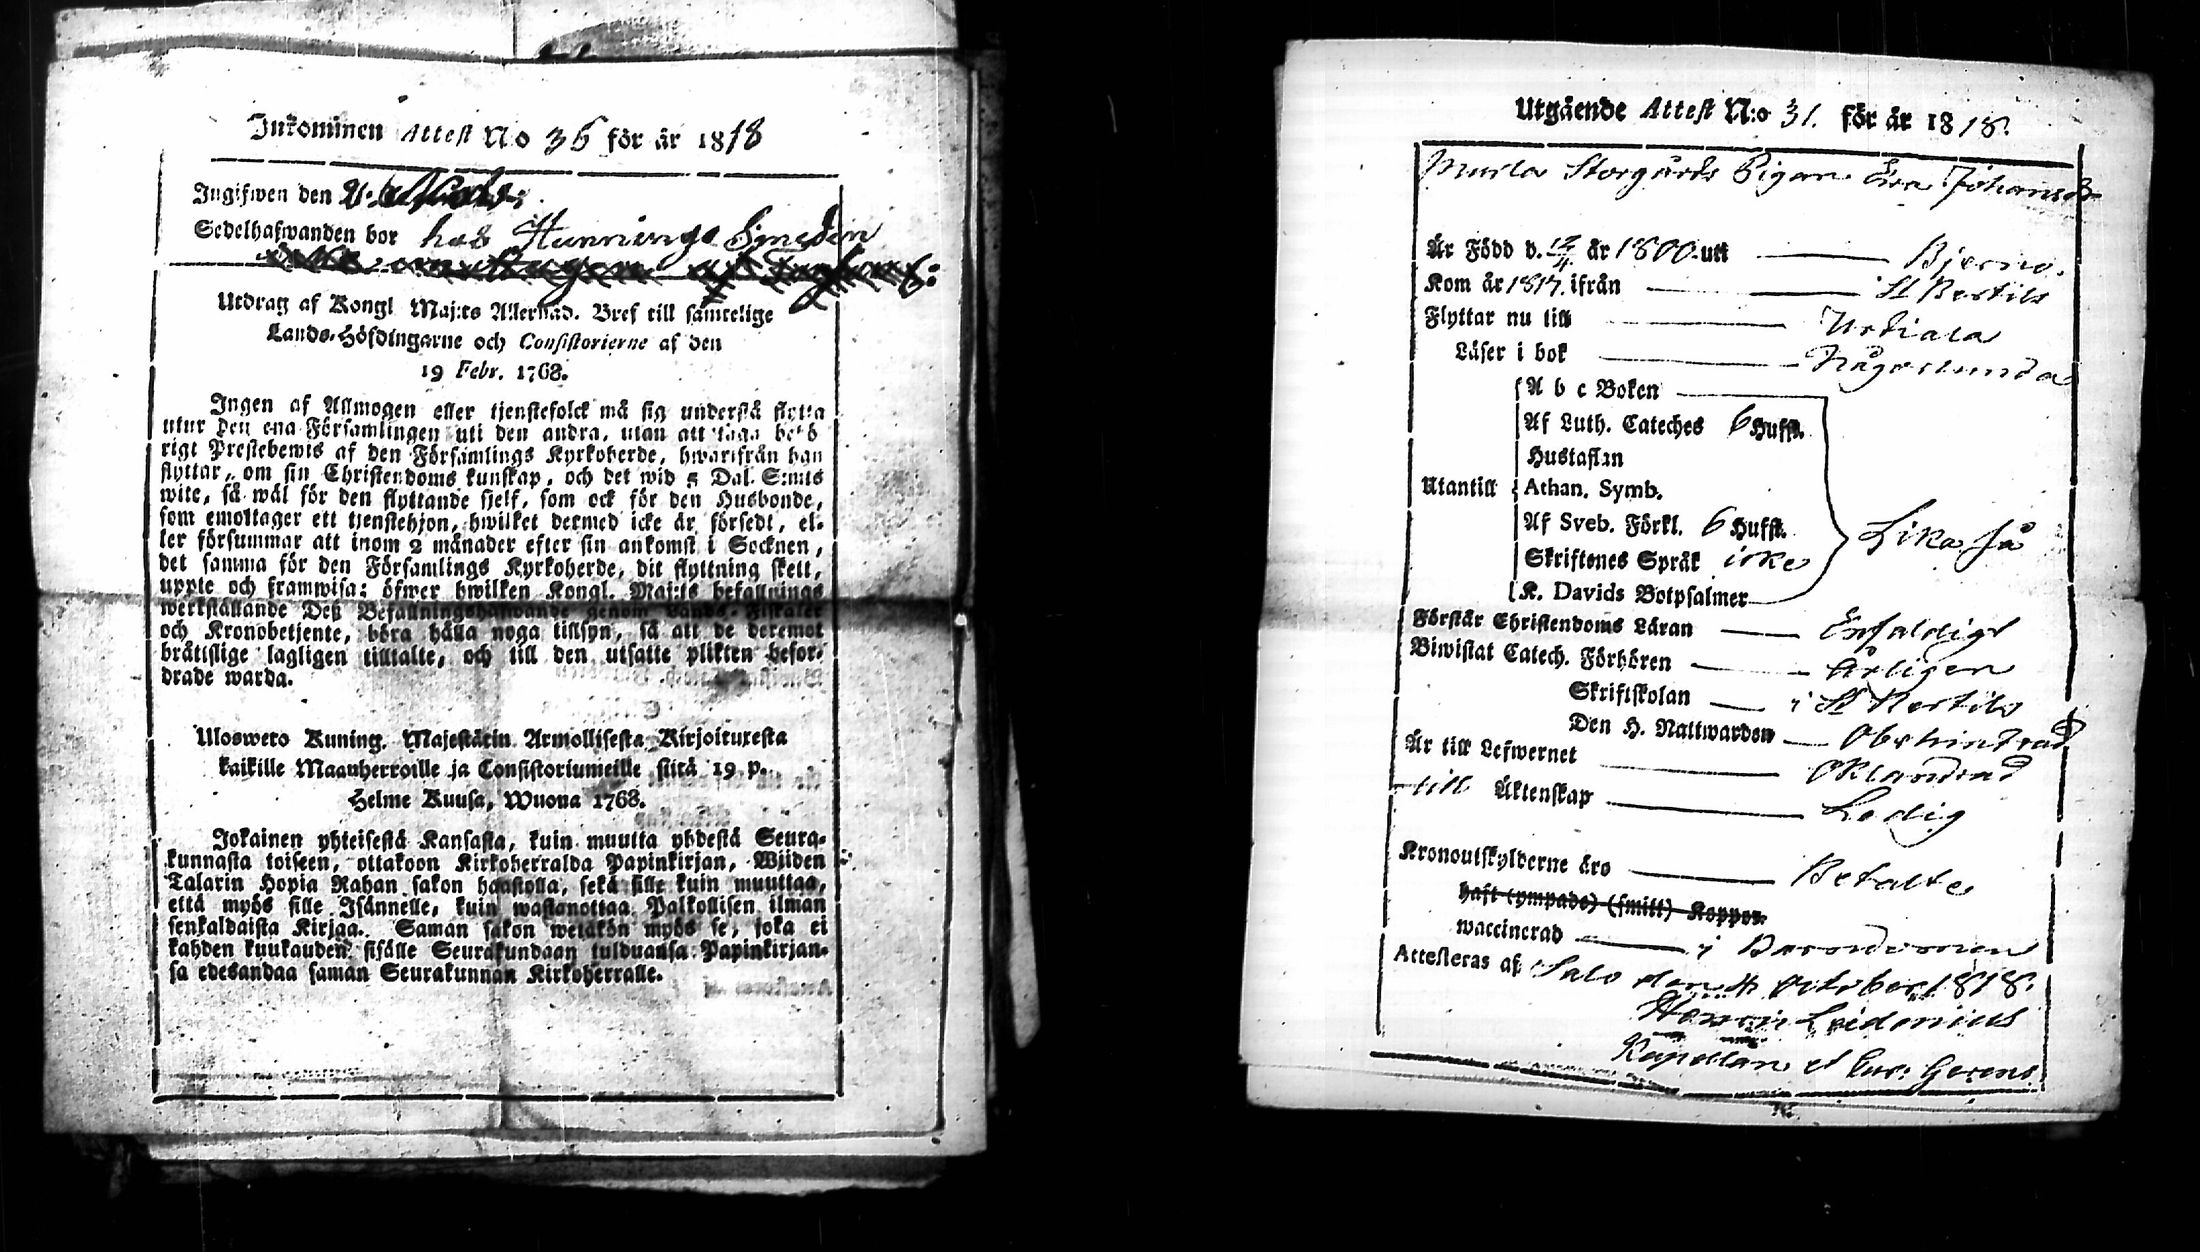 Inkommen Attest No 36 för år 1818
Ingifwen den
Sedelhafwanden bor hos Hunninge Smeden
Utdrag af Kongl Maj:ts Allernåd. Bref till samtelige
Lands-Höfdingarne och Consistorierne af den
19 Febr. 1768.
Ingen af Allmogen eller tjenstefolck må sig understå flytta
utur den ena Församlingen uti den andra, utan att taga behö
rigt Prestebewis af den Församlings Kyrkoherde, hwarifrån han
flyttar, om sin Christendoms kunskap, och det wid 5 Dal. S:mts
wite, så wäl för den flyttande sjelf, som ock för den Husbonde,
som emottager ett tjenstehjon, hwilket dermed icke är försedt, el-
ler försummar att inom 2 månader efter sin ankomst i Socknen,
det samma för den Församlings Kyrkoherde, dit flyttning skett,
uppte och framwisa: öfwer hwilken Kongl. Maj:ts befallnings
werkställande Deß Befallningshafwande genom Lands-Fiskaler
och Kronobetjente, böra hålla noga tillsyn, så att de deremot
bråttslige lagligen tilltalte, och till den utsatte plikten befor-
drade warda.
Ulosweto Kuning. Majestätin Armollisesta Kirjoituxesta
kaikille Maanherroille ja Consistoriumeille siitä 19 p.
Helme Kuusa, Wuona 1768.
Jokainen yhteisestä Kansasta, kuin muutta yhdestä Seura-
kunnasta toiseen, ottakoon Kirkoherralda Papinkirjan, Wiiden
Talarin Hopia Rahan sakon haastolla, sekä sille kuin muuttaa,
että myös sille Isännelle, kuin wastanottaa Palkollisen ilman
senkaldaista Kirjaa. Saman sakon wetäkön myös se, joka ei
kahden kuukauden sisälle Seurakundaan tulduansa Papinkirjan-
sa edesandaa saman Seurakunnan Kirkoherralle.
Utgående Attest N:o 31. för år 1818.
Murla Storgårds Pigan Eva Johansdr
Är Född d. 12/4 år 1800 utt Bjerno.
Kom år 1817. ifrån St Bertils
Flyttar nu till Urdiala
Läser i bok Någorlunda
A b c Boken
Af Luth. Cateches 6 Hufst.
Hustaflan
Utantill Athan. Symb.
Af Sveb. Förkl. 6 Hufst. Lika så
Skriftenes Språk icke
K. Davids Botpsalmer
Förstår Christendoms Läran Enfaldigt
Biwistat Catech. Förhören Årligen
Skriftskolan i St Bertils
Den H. Nattwarden Obehindrad
Är till Lefwernet Oklandrad
till Äktenskap Ledig
Kronoutskylderne äro Betalte
haft (ympade) (smitt) Koppor.
waccinerad i Barndomen
Attesteras af Salo den 4 October 1818.
Henric Leidenius
Kapellan et Cur: Gerens